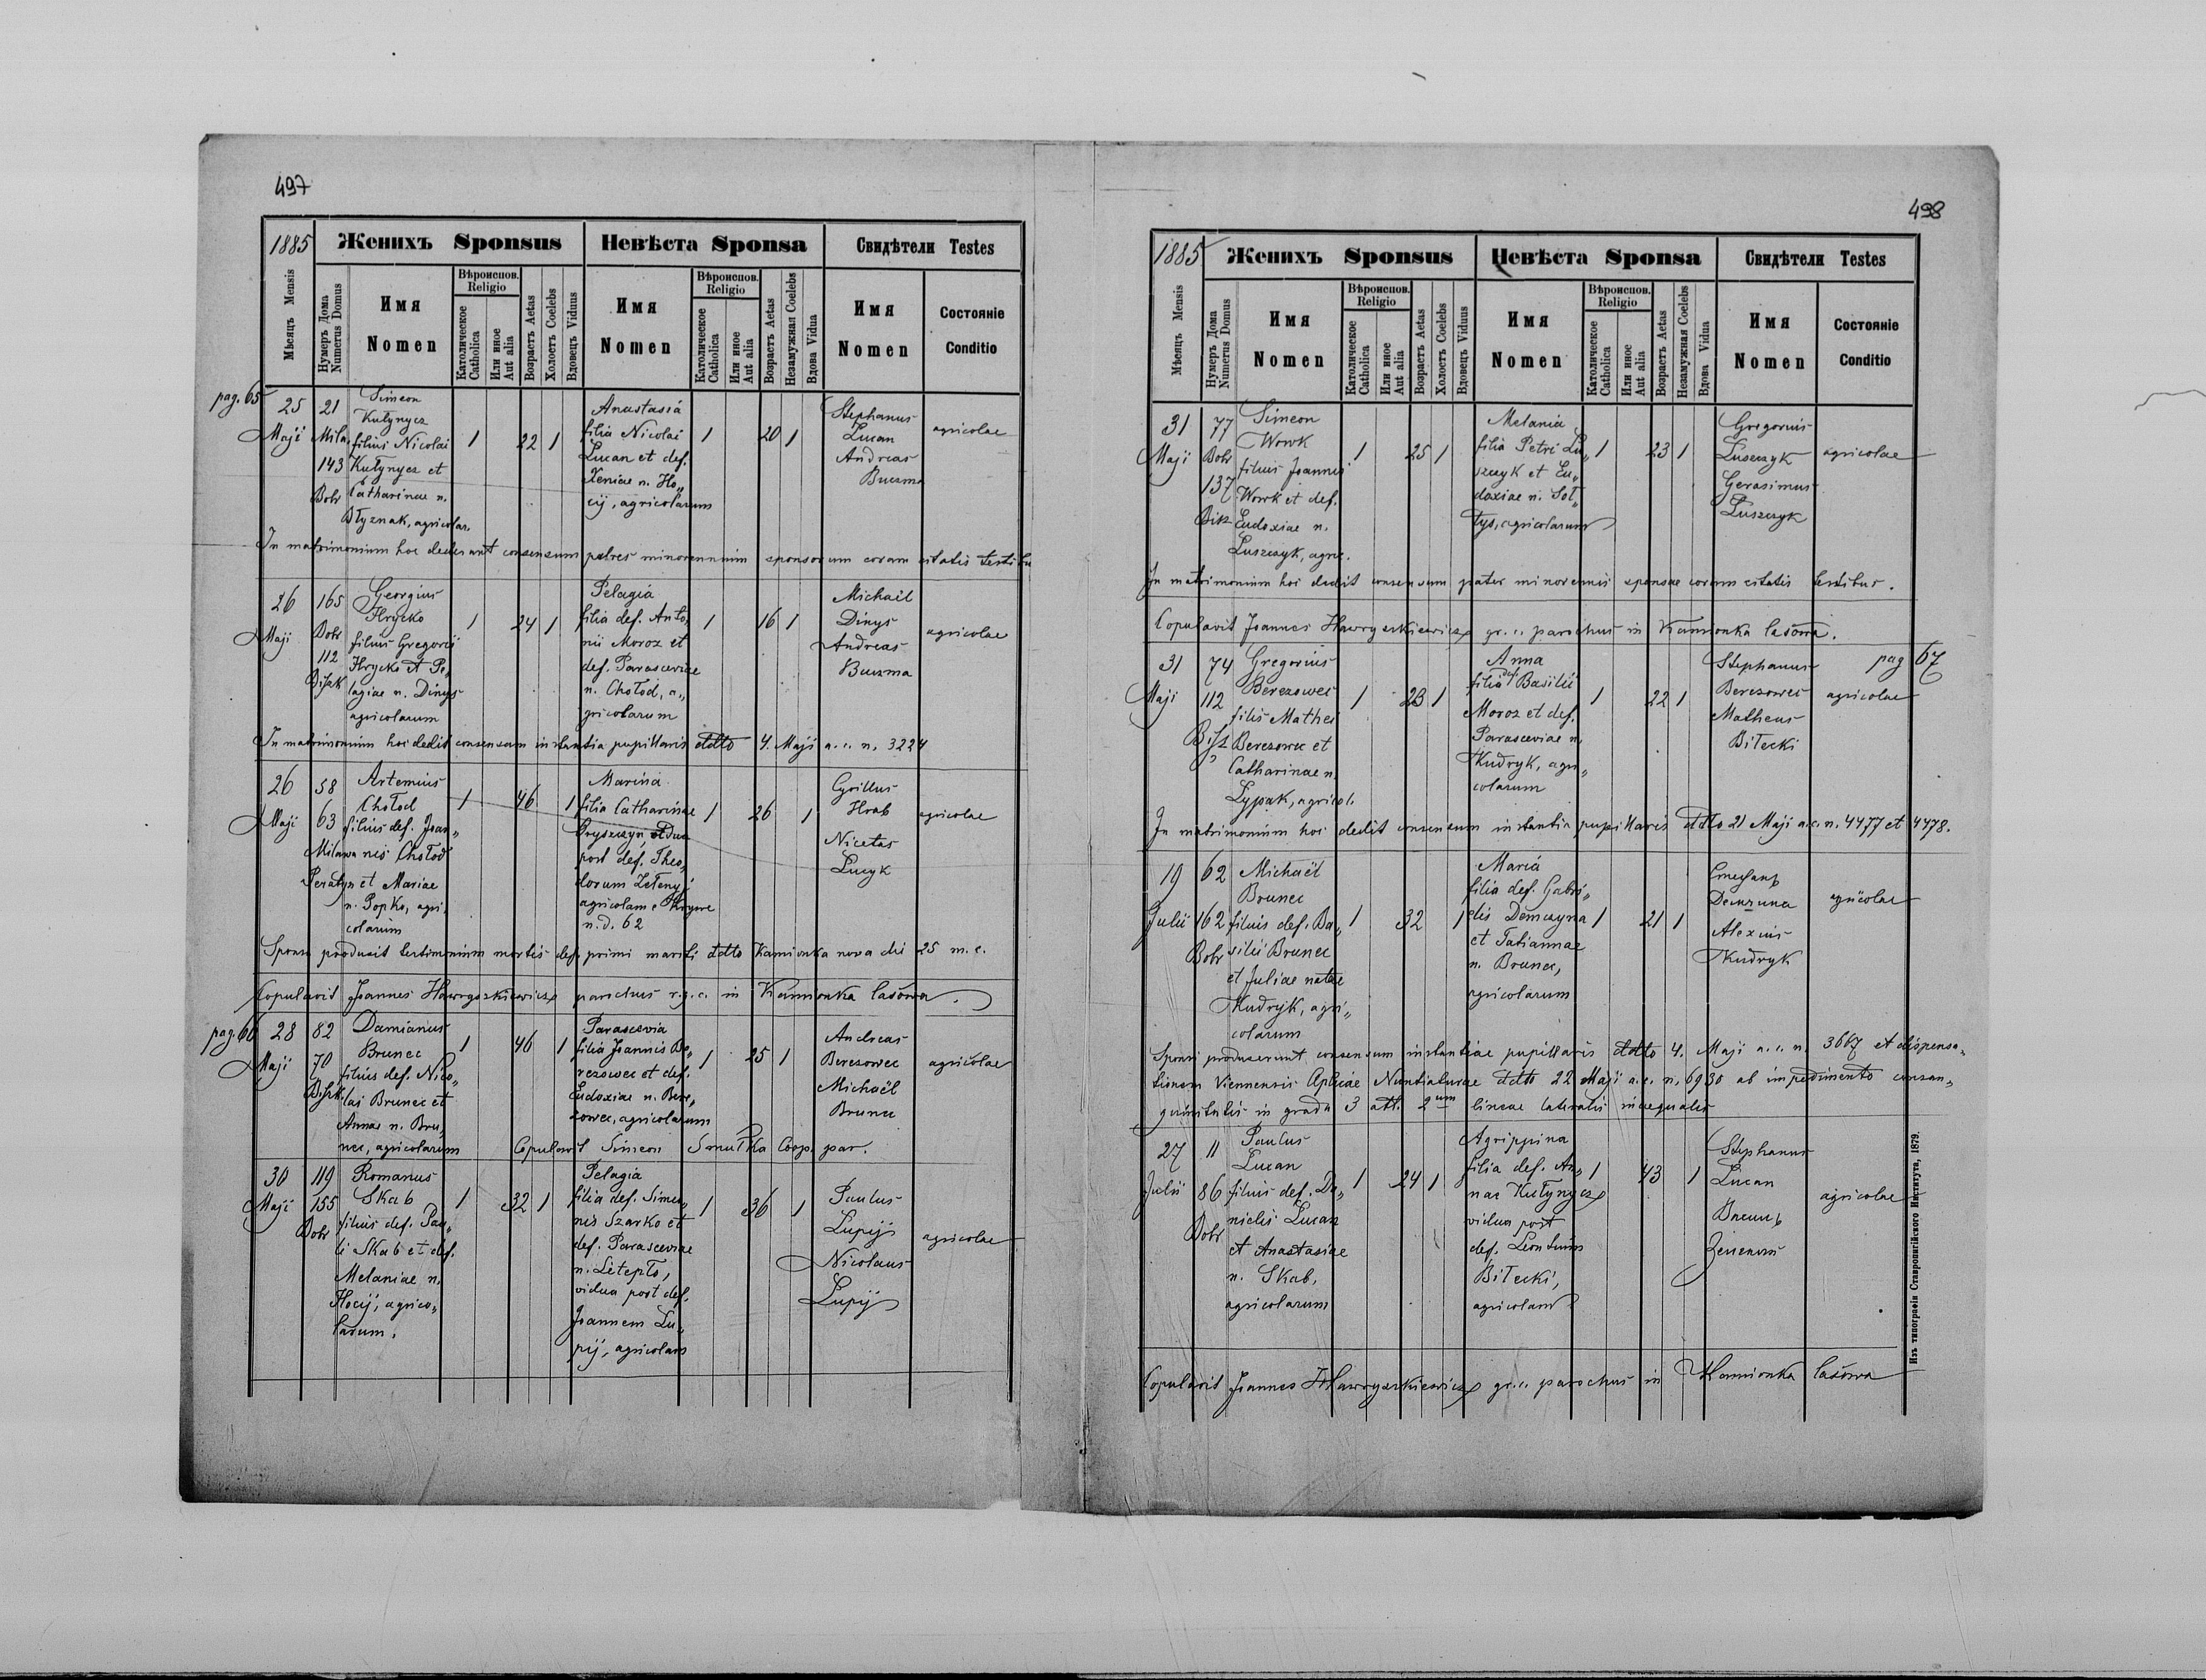 497
1885 Женихъ Sponsus Невѣста Sponsa Свидѣтели Testes
Мѣсяцъ Mensis
Нумеръ Дома Numerus Domus
Имя Nomen
Вѣроиспов. Religio
Католическое Catholica
Или иное Aut alia
Возрастъ Aetas
Холостъ Coelebs
Вдовецъ Viduus
Имя Nomen
Вѣроиспов. Religio
Католическое Catholica
Или иное Aut alia
Возрастъ Aetas
Незамужная Coelebs
Вдова Vidua
Имя Nomen
Состояніе Conditio
pag. 65
25 Maji
21 Mila
143 Bobr
Simeon
Kułynycz
filius Nicolai
Kułynycz et
Catharinae n.
Błyznak, agricolar.
1 22 1
Anastasia
filia Nicolai
Lucan et def.
Xeniae n. Ho„
cij, agricolarum
1 20 1
Stephanus
Lucan
Andreas
Buczma
agricolae
In matrimonium hoc dederunt consensum patres minorennium sponsorum coram citatis testibu
26 Maji
165 Bobr
112 Biszk
Georgius
Hrycko
filius Gregorii
Hrycko et Pe„
lagiae n. Dinys
agricolarum
1 24 1
Pelagia
filia def. Anto„
nii Moroz et
def. Parasceviae
n. Chołod, a„
gricolarum
1 16 1
Michaël
Dinys
Andreas
Buczma
agricolae
In matrimonium hoc dedit consensum instantia pupillaris ddto 4. Maji a. c. n. 3224
26 Maji
58
63
Milawa
Peratyn
Artemius
Chołod
filius def. Joan„
nis Chołod
et Mariae
n. Popko, agri„
colarum
1 46 1
Marina
filia Catharinae
Gryszczyn, vidua
post def. Theo„
dorum Zełenyj
agricolam e
n. d. 62
1 26 1
Cyrillus
Hrab
Nicetas
Lucyk
agricolae
Sponsa produxit testimonium mortis def. primi mariti ddto Kamionka nova dei 25 m. c.
Copulavit Joannes Hawryszkiewicz parochus r. g. c. in Kamionka lasowa.
pag. 66
28 Maji
82
70 Biszk.
Damianus
Brunec
filius def. Nico„
lai Brunec et
Annae n. Bru„
nec, agricolarum
1 46 1
Parascevia
filia Joannis Be„
rezowec et def.
Eudoxiae n. Bere„
zowec, agricolarum
1 25 1
Andreas
Berezowec
Michaël
Brunec
agricolae
Copulavit Simeon Smułka Coop. par.
30 Maji
119
155 Bobr
Romanus
Skab
filius def. Pau„
li Skab et def.
Melaniae n.
Hocij, agrico„
larum.
1 32 1
Pelagia
filia def. Simeo„
nis Szarko et
def. Parasceviae
n. Letepło,
vidua post def.
Joannem Lu„
pij, agricolam
1 36 1
Paulus
Lupij
Nicolaus
Lupij
agricolae
498
1885 Женихъ Sponsus Невѣста Sponsa Свидѣтели Testes
Мѣсяцъ Mensis
Нумеръ Дома Numerus Domus
Имя Nomen
Вѣроиспов. Religio
Католическое Catholica
Или иное Aut alia
Возрастъ Aetas
Холостъ Coelebs
Вдовецъ Viduus
Имя Nomen
Вѣроиспов. Religio
Католическое Catholica
Или иное Aut alia
Возрастъ Aetas
Незамужная Coelebs
Вдова Vidua
Имя Nomen
Состояніе Conditio
31 Maji
77 Bobr
137 Bisz
Simeon
Wowk
filius Joannis
Wowk et def.
Eudoxiae n.
Luszczyk, agric.
1 25 1
Melania
filia Petri Lu„
szczyk et Eu„
doxiae n. Soł
tys, agricolarum
1 23 1
Gregorius
Luszczyk
Gerasimus
Luszczyk
agricolae
In matrimonium hoc dedit consensum pater minorennis sponsae coram citatis testibus.
Copulavit Joannes Hawryszkiewicz gr. c. parochus in Kamionka lasowa.
pag 67
31 Maji
74
112
Bisz
Gregorius
Berezowec
filis Mathei
Berezowec et
Catharinae n.
Lypak, agricol.
1 23 1
Anna
filia def Basilii
Moroz et def.
Parasceviae n.
Kudryk, agri„
colarum
1 22 1
Stephanus
Berezowec
Matheus
Biłecki
agricolae
In matrimonium hoc dedit consensum instantia pupillaris ddto 21 Maji a. c. n. 4477 et 4478.
19 Julii
62
162
Bobr
Michaël
Brunec
filius def. Ba„
silii Brunec
et Juliae natae
Kudryk, agri„
colarum
1 32 1
Maria
filia def. Gabri„
elis Demczyna
et Tatiannae
n. Brunec,
agricolarum
1 21 1
Стефанъ
Демчина
Alexius
Kudryk
agricolae
Sponsi produxerunt consensum instantiae pupillaris ddto 4. Maji a. c. n. 3667 et dispensa„
tionem Viennensis Apliciae Nuntiaturae ddto 22 Maji a. c. n. 6930 ab impedimento consan„
guinitatis in gradu 3 att. 2um lineae lateralis inaequalis
27 Julii
11
86
Bobr
Paulus
Lucan
filius def. Da„
nielis Lucan
et Anastasiae
n. Skab,
agricolarum
1 24 1
Agrippina
filia def. An„
nae Kułynycz
vidua post
def. Leontium
Biłecki,
agricolam
1 43 1
Stephanus
Lucan
agricolae
Copulavit Joannes Hawryszkiewicz gr. c. parochus in Kamionka lasowa
Изъ типографіи Ставропигійского Института, 1879.